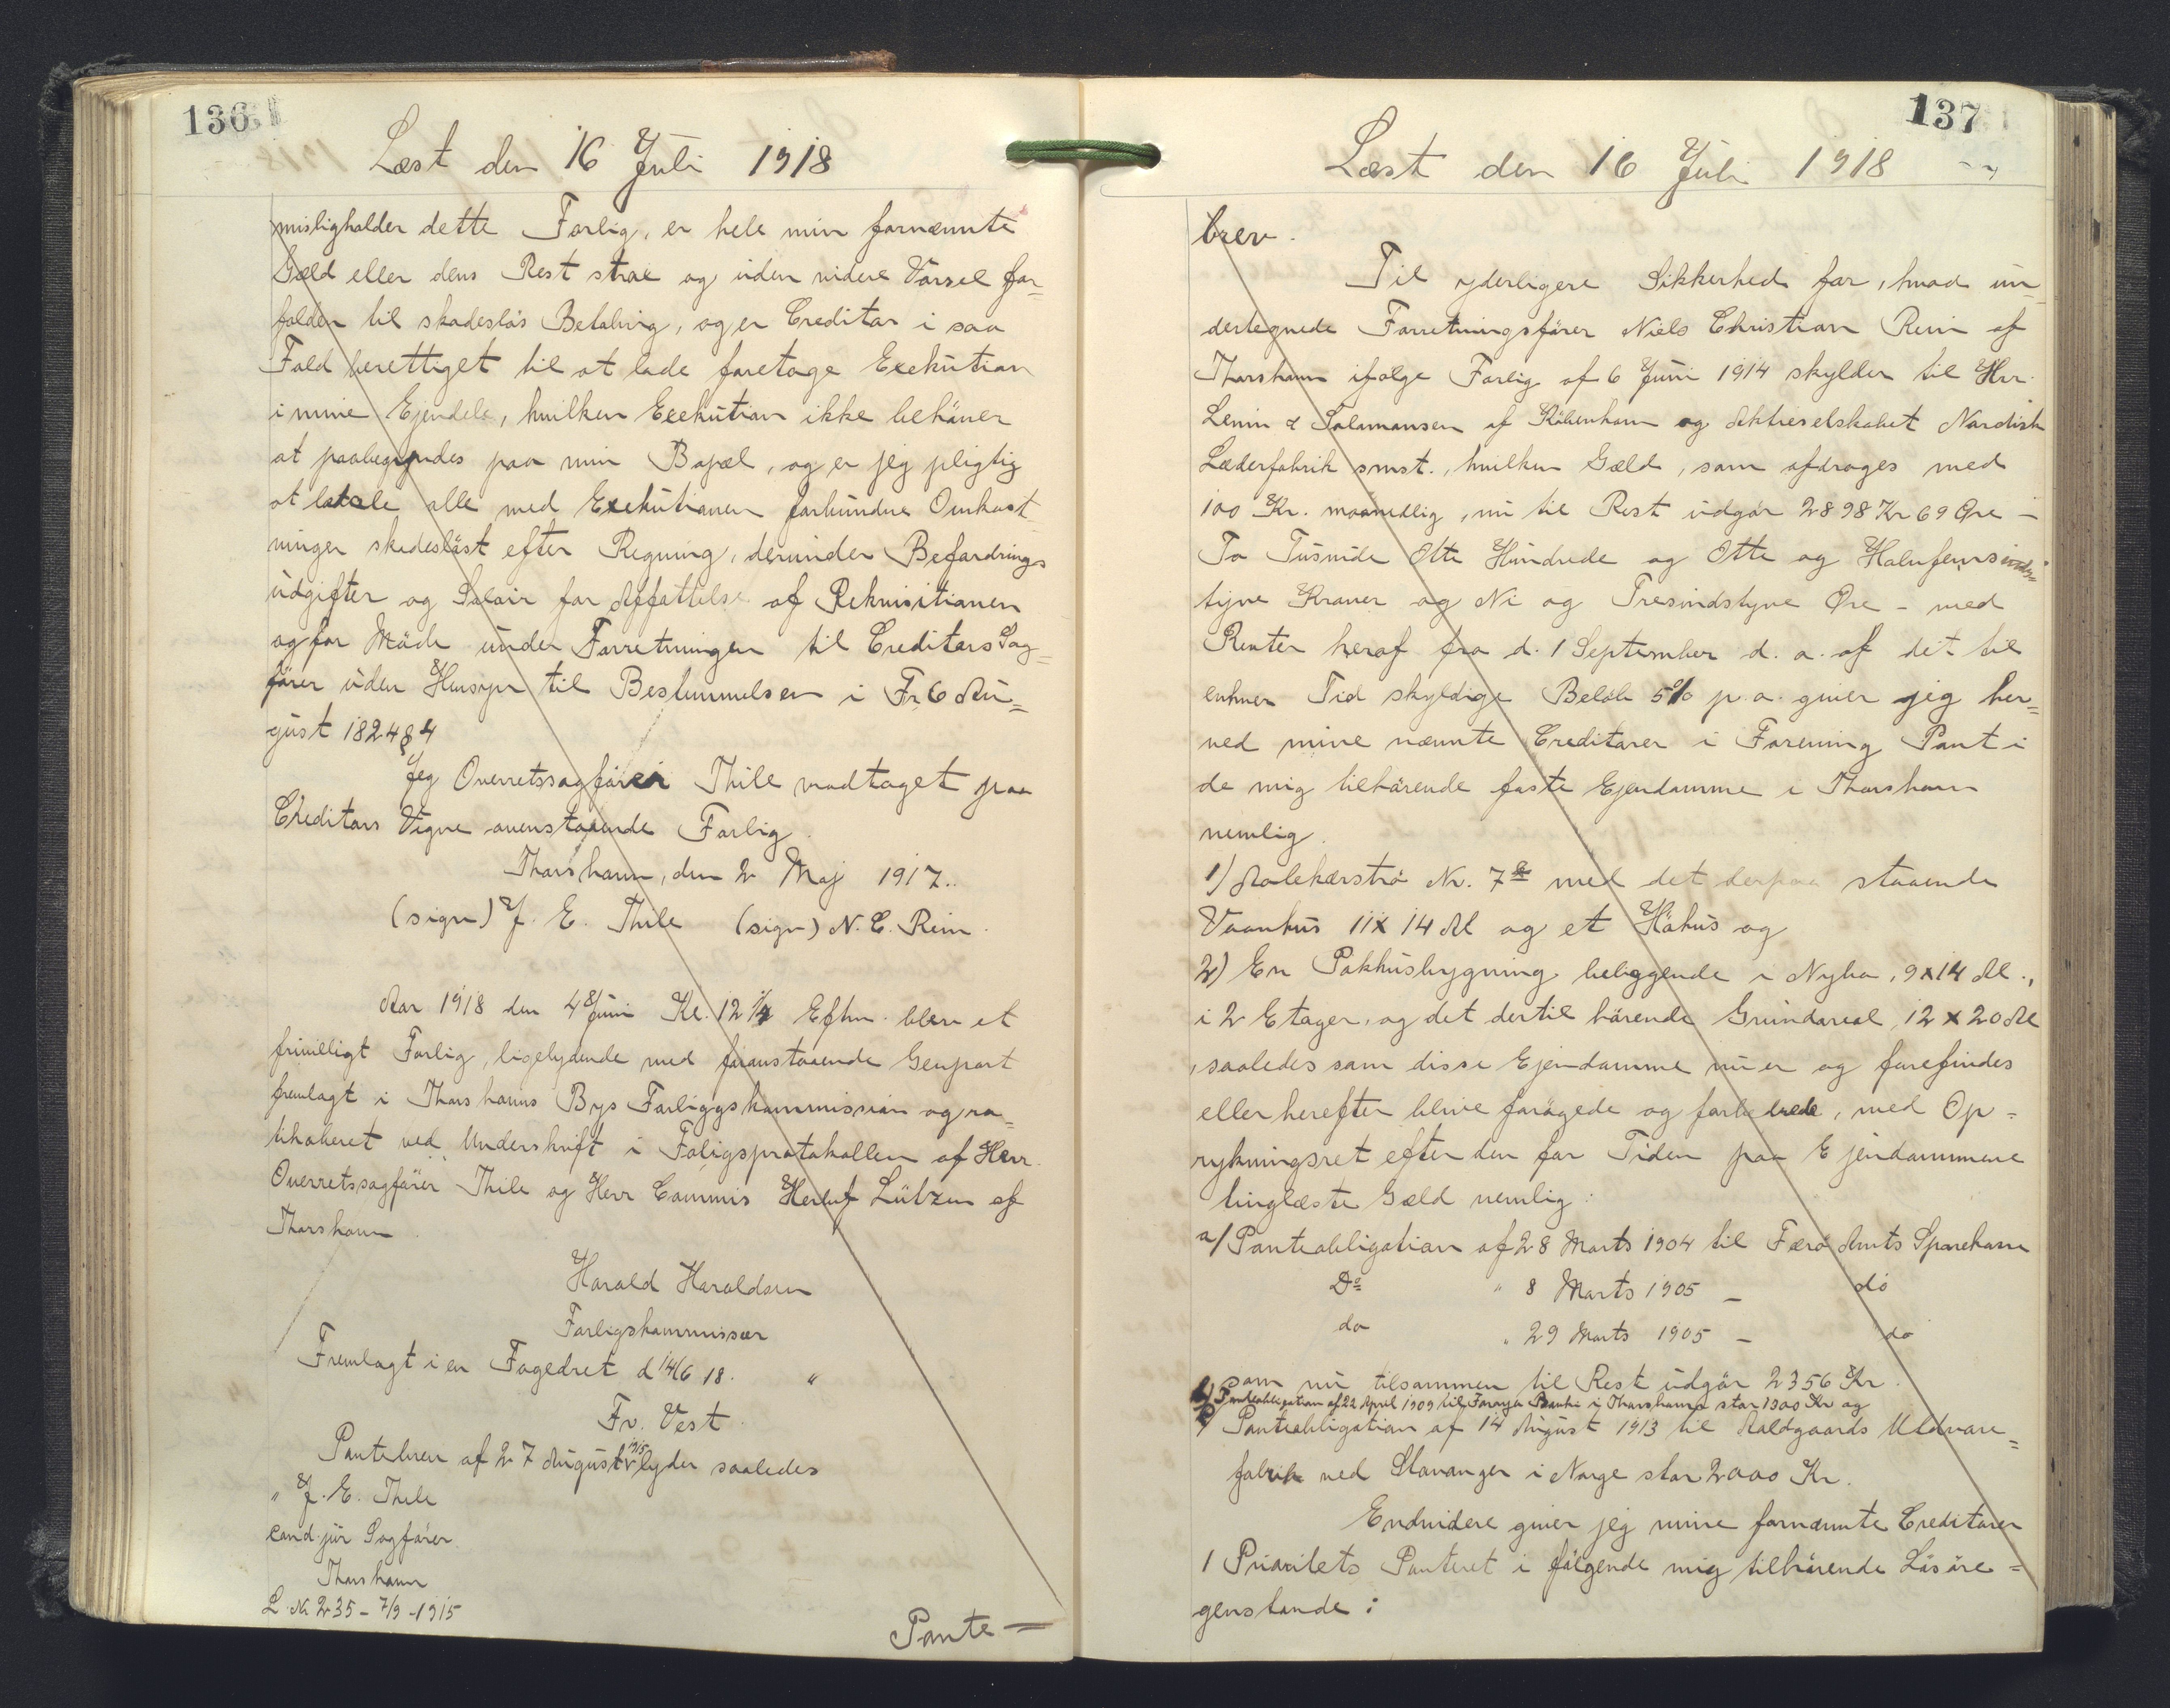 136
Læst den 16 Juli 1918
misligholder dette Forlig, er hele min fornævnte
Gæld eller dens Rest strax og uden videre Varsel for=
falden til skadesløs Betaling, og er Creditor i saa
Fald berettiget til at lade foretage Exekution
i mine Ejendele, hvilken Exekution ikke behøver
at paabegyndes paa min Bopæl, og er jeg pligtig
at betale alle med Exekutionen forbundne Omkost
ninger skadesløst efter Regning, derunder Befordrings
udgifter og Salair for Affattelse af Rekvisitionen
og for Møde under Forretningen til Creditors Sag=
fører uden Hensyn til Bestemmelsen i Fr. 6 Au=
gust 1824 § 4
Jeg Overretssagfører Thile modtaget paa
Creditors Vegne ovenstaaende Forlig.
Thorshavn, den 2 Maj 1917.
(sign) J. E. Thile (sign) N. C. Rein.
Aar 1918 den 4 Juni Kl. 12 1/4 Eftm. blev et
frivilligt Forlig, ligelydende med foranstaaende Genpart
fremlagt i Thorshavns Bys Forligskommission og ra=
tihaberet ved Underskrift i Foligsprotokollen af Herr.
Overretssagfører Thile og Herr Commis Herluf Lützen af
Thorshavn.
Harald Haraldsen
Forligskommissær
Fremlagt i en Fogedret d 14/6 18. "
Fr. Vest.
Pantebrev af 27 August 1915 lyder saaledes
" J. E. Thile
cand. jur Sagfører.
Thorshavn
L. Nr 235 - 7/9 - 1915
Pante=
137
Læst den 16 Juli 1918
brev.
Til yderligere Sikkerhed for, hvad un=
dertegnede Forretningsfører Niels Christian Rein af
Thorshavn ifølge Forlig af 6 Juni 1914 skylder til Hrr.
Levin & Salomonsen af København og Aktieselskabet Nordisk
Læderfabrik smst., hvilken Gæld, som afdrages med
100 Kr. maanedlig, nu til Rest udgør 2898 Kr 69 Øre -
To Tusinde Otte Hundrede og Otte og Halvfemsinds=
tyve Kroner og Ni og Tresindstyve Øre - med
Renter heraf fra d. 1 September d. a. af det til
enhver Tid skyldige Beløb 5% p. a. giver jeg her=
ved mine nævnte Creditorer i Forening Pant i
de mig tilhørende faste Ejendomme i Thorshavn
nemlig.
1) Aalekærstrø Nr. 7 a med det derpaa staaende
Vaanhus 11 x 14 Al og et Høhus og
2) En Pakhusbygning beliggende i Nyben, 9 x 14 Al.,
i 2 Etager, og det dertil hørende Grundareal, 12 x 20 Al
, saaledes som disse Ejendomme nu er og forefindes
eller herefter blive forøgede og forbedrede, med Op=
rykningsret efter den for Tiden paa Ejendommene
tinglæste Gæld nemlig:
a/ Panteobligation af 28 Marts 1904 til Færø Amts Sparekasse
Do " 8 Marts 1905 - do
do " 29 Marts 1905 - do
som nu tilsammen til Rest udgør 2356 Kr.
b) Panteobligation af 22 April 1909 til Føroya Banki i Thorshavn stor 1300 Kr og
c) Panteobligation af 14 August 1913 til Aalgaards Uldvare=
fabrik ved Stavanger i Norge stor 2000 Kr.
Endvidere giver jeg mine fornævnte Creditorer
1 Prioritets Panteret i følgende mig tilhørende Løsøre=
genstande: